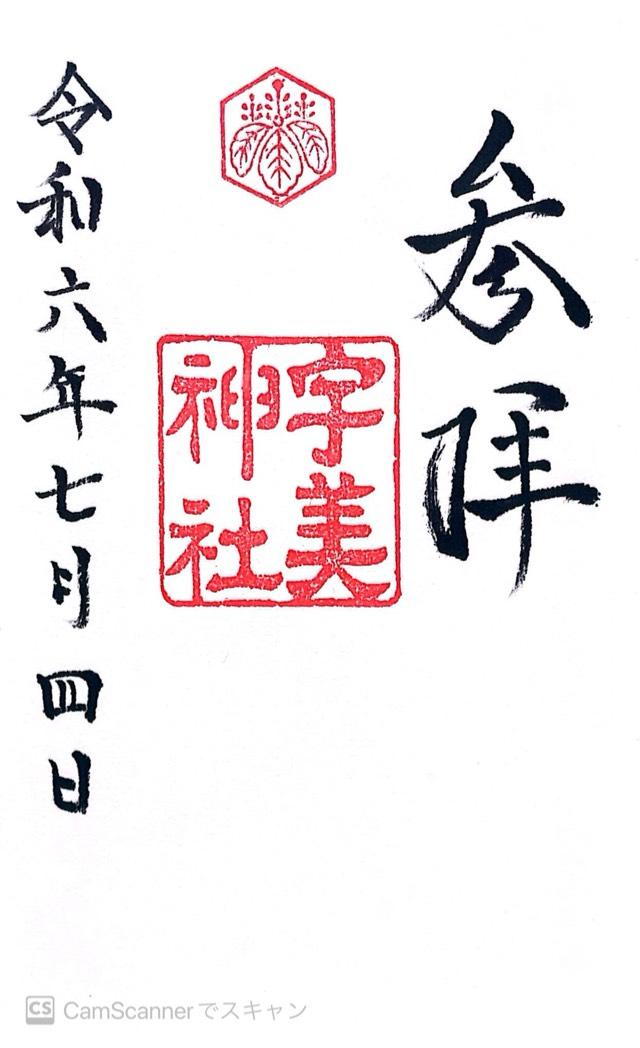 参拝
宇美
神社
令和六年七月四日
CS CamScannerでスキャン